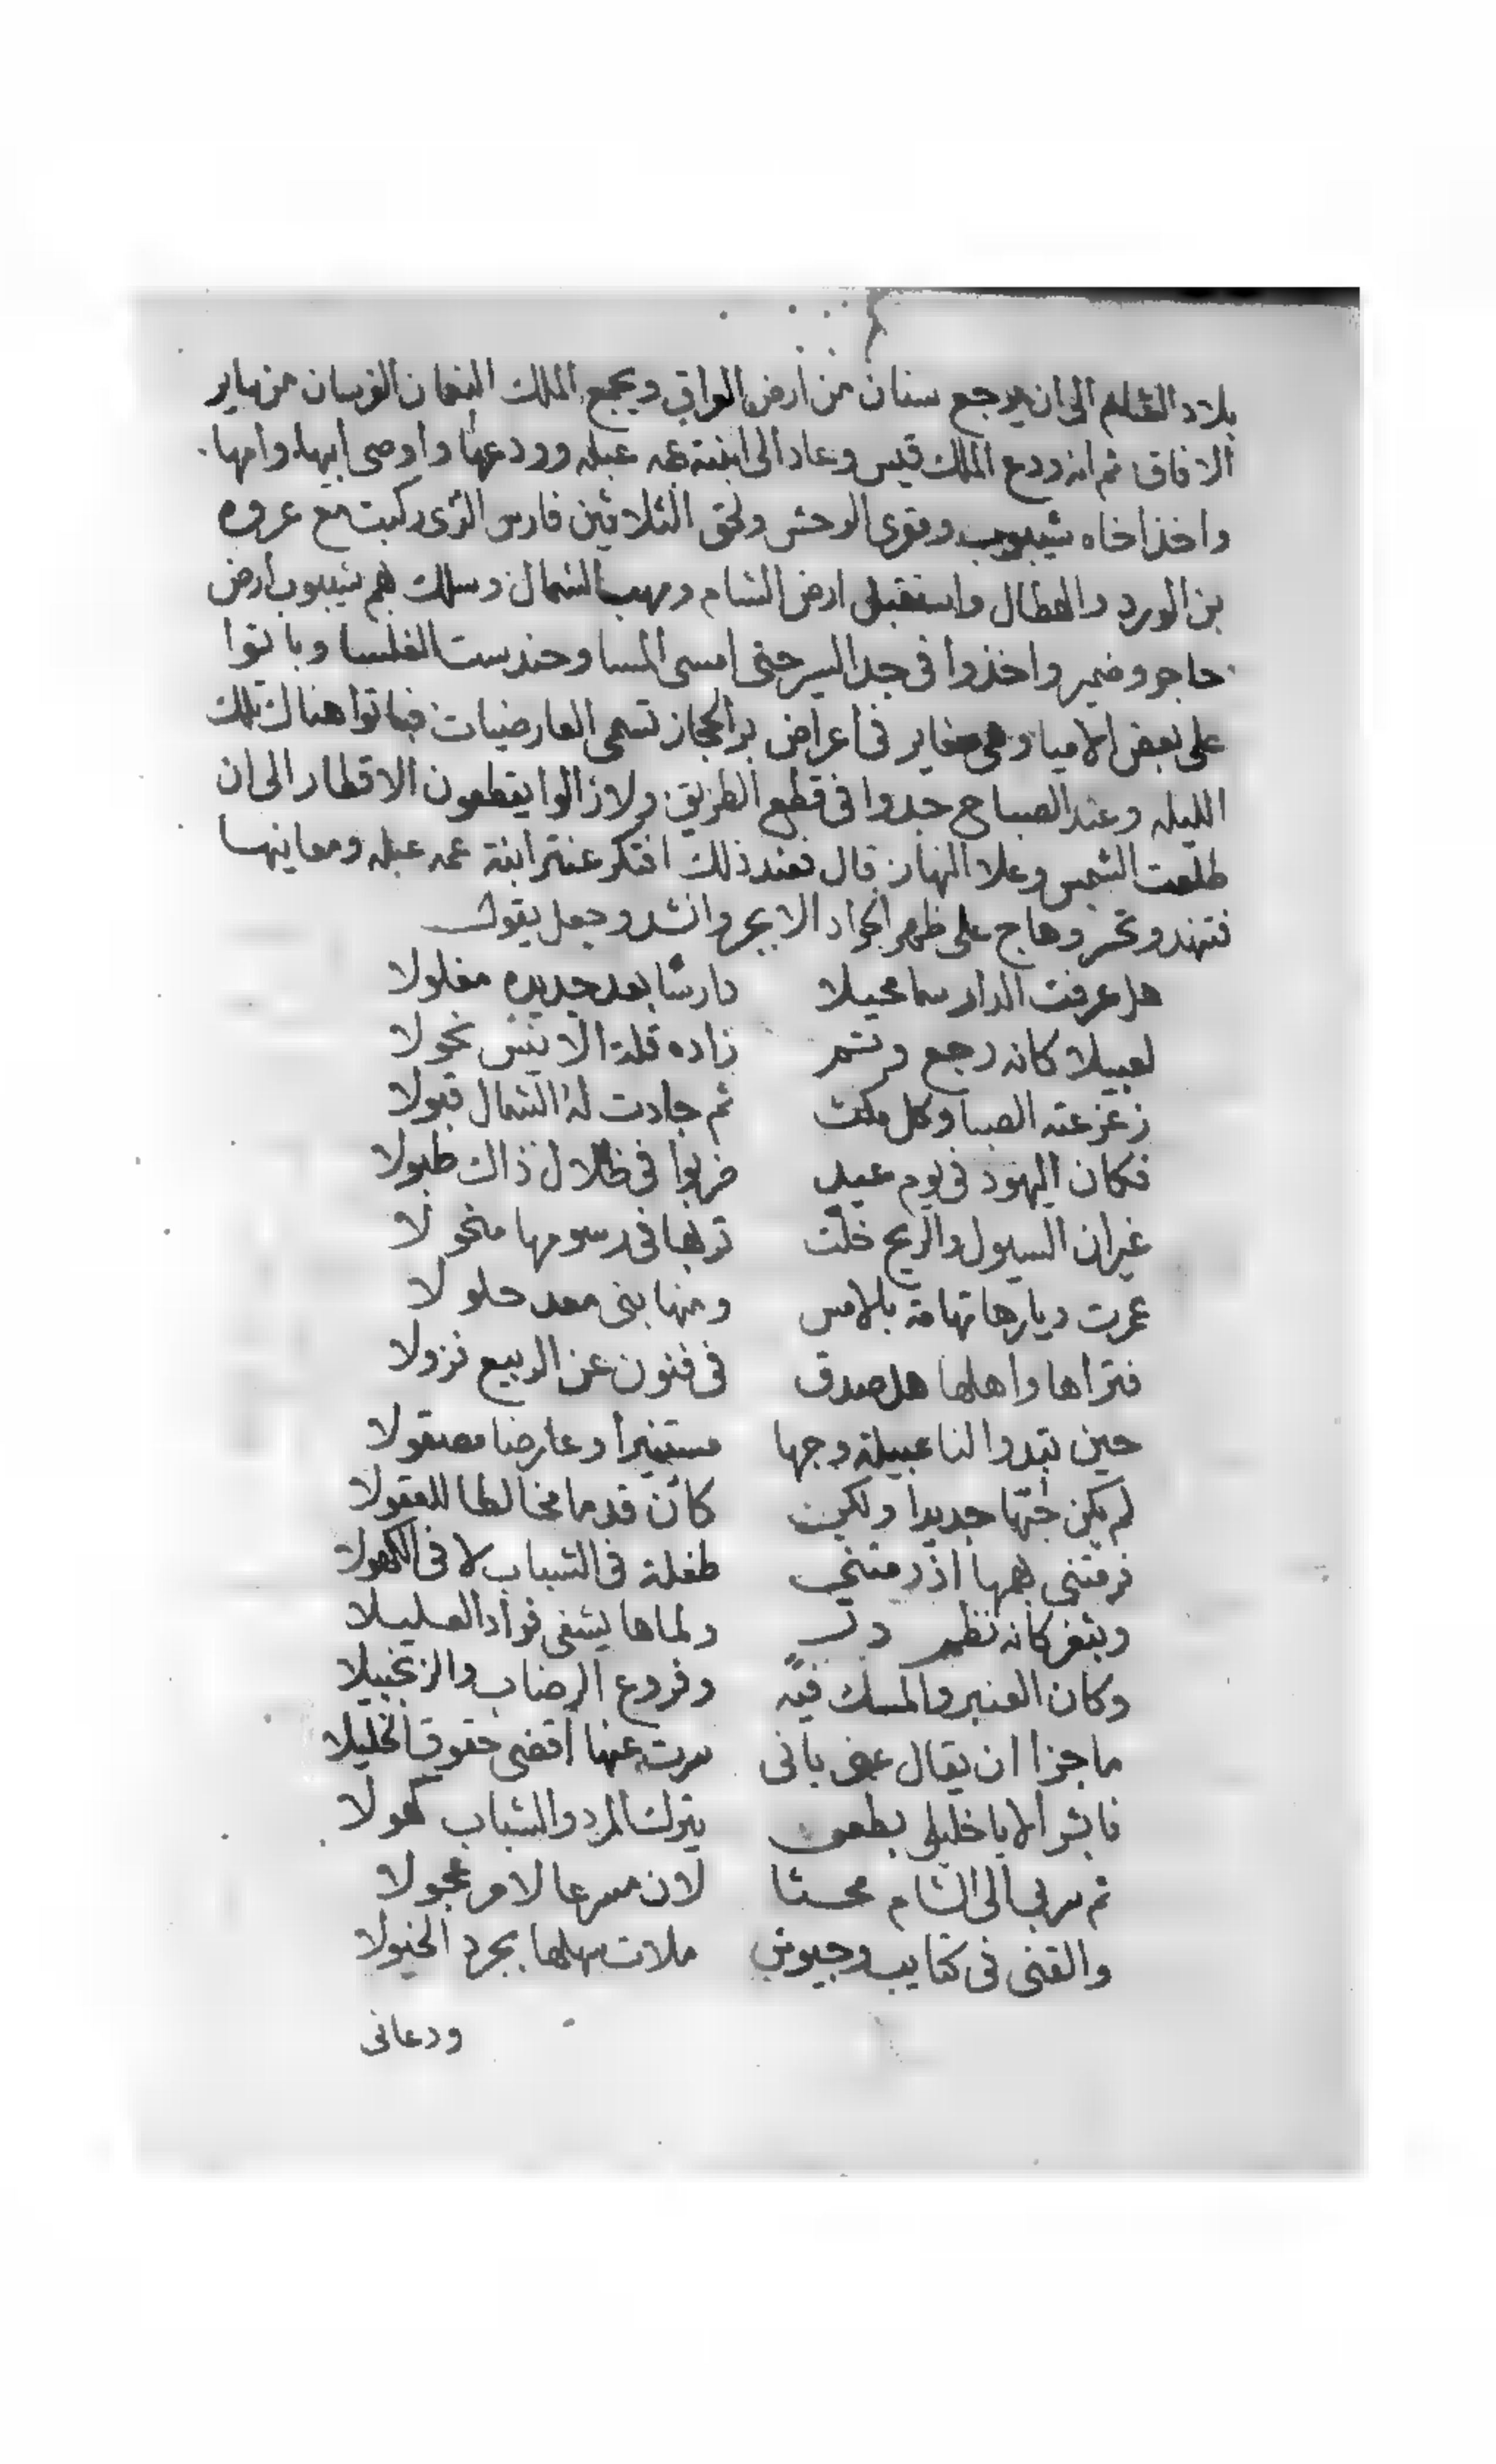 بلاد الشام الى ان يرجع سنان من ارض العراق ويجمع الملك النعمان الفرسان من ساير
الافاق ثم انه ودع الملك قيس وعاد الى ابنة عمه عبله وودعها واوصى ابيها وامها
واخذ اخاه شيبوب ومقرى الوحش ولحق الثلاثين فارس الذى ركبت مع عروه
بن الورد والهطال واستقبلى ارض الشام ومهب الشمال وسلك بهم شيبوب ارض
حاجر وضمير واخذوا فى جد السير حتى امسى المسا وحندست الغلسا وباتوا
على بعض الاميا وهى حفاير فى اعراض بر الحجاز تسمى العارضيات فباتوا هناك تلك
الليله وعند الصباح جدوا فى قطع الطريق ولا زالوا يقطعون الاقطار الى ان
طلعت الشمس وعلا النهار قال فعند ذلك افتكر عنتر ابنة عمه عبله ومعاينها
فتنهد وتحسر وهاج على ظهر الجواد الابجر وانشد وجعل يقول
هل عرفت الدار سما محيلا دارسًا بعد جديده مغلولا
لعبيلا كانه رجع وشم زاده قلة الانيس نحولا
زعزعته الصبا وكل ملث ثم جادت له الشمال قبولا
فكان اليهود فى يوم عيد ضربوا فى ظلال ذاك طبولا
غير ان السيول والريح خلت تربها فى رسومها منخولا
عمرت ديارها تهامة بالامس ومنها بنى معد حلولا
فتراها واهلها هل صدق فى فنون عن الربيع نزولا
حين تبدوا لنا عبيلة وجها مستنيرا وعارضا مصقولا
لم يكن حبها جديدا ولكن كان قدما مخالطا للعقولا
فرمتنى بهمها اذ رمتني طفلة فى الشباب لا فى الكهولا
وبثغر كانه نظم در ولماها يشفى فواد العليلا
وكان العنبر والمسك فيه وفروع الرضاب والزنجبيلا
ما جزا ان يقال عنى بانى سرت عنها اقضى حقوق الخليلا
فابشر الا يا خليلى بطعن يترك المرد والشباب كهولا
ثم سر بى الى الشام محسنا لان مسرعا لامر عجولا
والقنى فى كتايب وجيوش ملات سهلها بجرد الخيولا
ودعانى